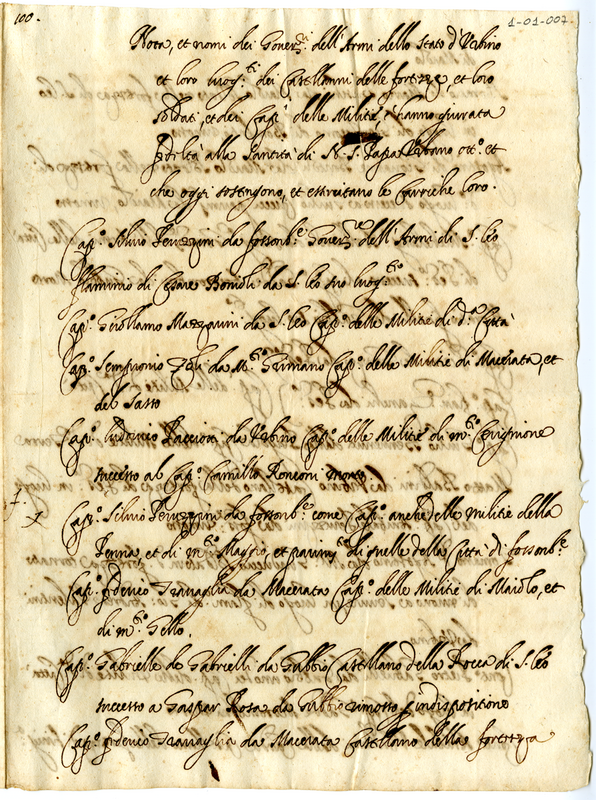 100.
1-01-007.
Nota, et nomi dei Goner.ri dell'Armi dello stato d'Urbino
et loro luog.ti dei Castellanni delle fortezze, et loro
soldati, et dei Cap.i delle Militie, hanno giurata
fedeltà alla Santità di N. S. Papa Urbano ott.o et
che oggi sostengono, et essercitano le Carriche loro.
Cap.o Silvio da fossonb.e Goner.re dell'Armi di S. leo
flaminio di Cesare Bonioli da S. leo suo luog.te
Cap.o Girollamo Mazzarini da S. leo Cap.o delle Militie di d.a Città
Cap.o Sempronio da M.te Grimano Cap.o delle Militie di Macerata, et
del Sasso
Cap.o Ludovico Paccioni da Urbino Cap.o delle Militie di m.te Cerignione
successo al Cap.o Camillo Ronconi morto
Cap.o Silvio da fossonb.e come Cap.o anche delle militie della
Penna, et di m.te Maggio, et parim.te di quelle della Città di fossonb.e
Cap.o federico Travaglia da Macerata Cap.o delle Militie di Maiolo, et
di m.te Gello.
Cap.o Gabrielle de Gabrielli da Gubbio Castellano della Rocca di S. leo
successo a Gaspar Rosa da Gubbio rimosso p indispositione
Cap.o federico Travaglia da Macerata Castellano della fortezza